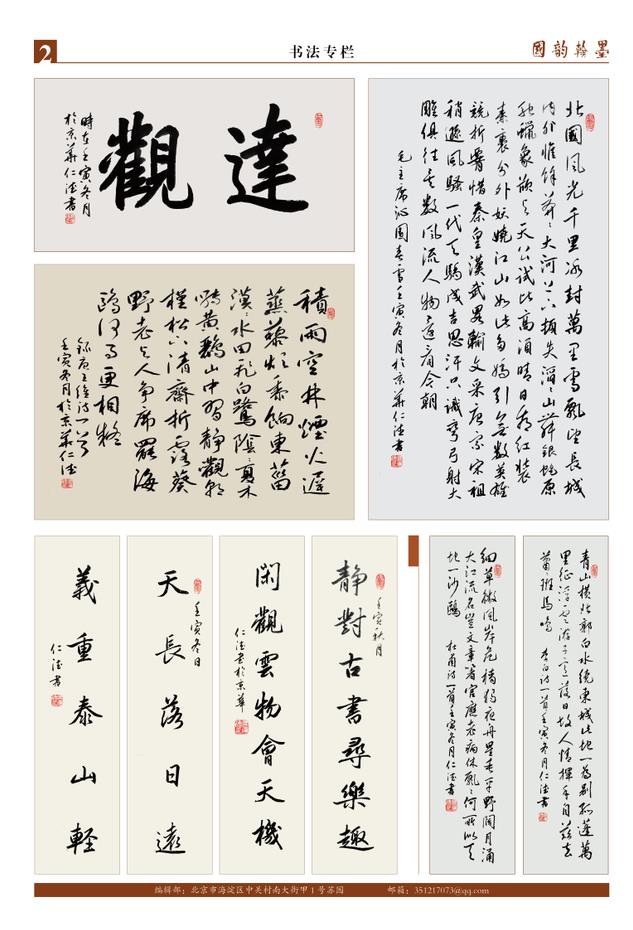 2
书法专栏
國韵翰墨
達觀
時在壬寅冬月
於京華仁德書
北國風光千里冰封萬里雪飄望長城
内外惟餘莽々大河上下頓失滔々山舞銀蛇原
馳蠟象欲與天公試比高須晴日看紅裝
素裹分外妖嬈江山如此多嬌引無數英雄
競折腰惜秦皇漢武畧輸文采唐宗宋祖
稍遜風騷一代天驕成吉思汗只識彎弓射大
雕俱往矣數風流人物還看今朝
毛主席沁園春雪壬寅冬月於京華仁德書
積雨空林煙火遲
蒸藜炊黍餉東菑
漠々水田飛白鷺陰々夏木
囀黄鸝山中習靜觀朝
槿松下清齋折露葵
野老與人争席罷海
鷗何事更相疑
錄唐王維詩一首
壬寅冬月於京華仁德
青山横北郭白水繞東城此地一為别孤蓬萬
里征浮雲游子意落日故人情揮手自兹去
蕭蕭班馬鳴 李白詩一首壬寅冬月仁德書
細草微風岸危檣獨夜舟星垂平野闊月涌
大江流名豈文章著官應老病休飄々何所似天
地一沙鷗 杜甫詩一首壬寅冬月仁德書
壬寅秋月
静對古書尋樂趣
閑觀雲物會天機
仁德書於京華
壬寅冬日
天長落日遠
義重泰山輕
仁德書
编辑部：北京市海淀区中关村南大街甲1号苏园 邮箱：351217073@qq.com